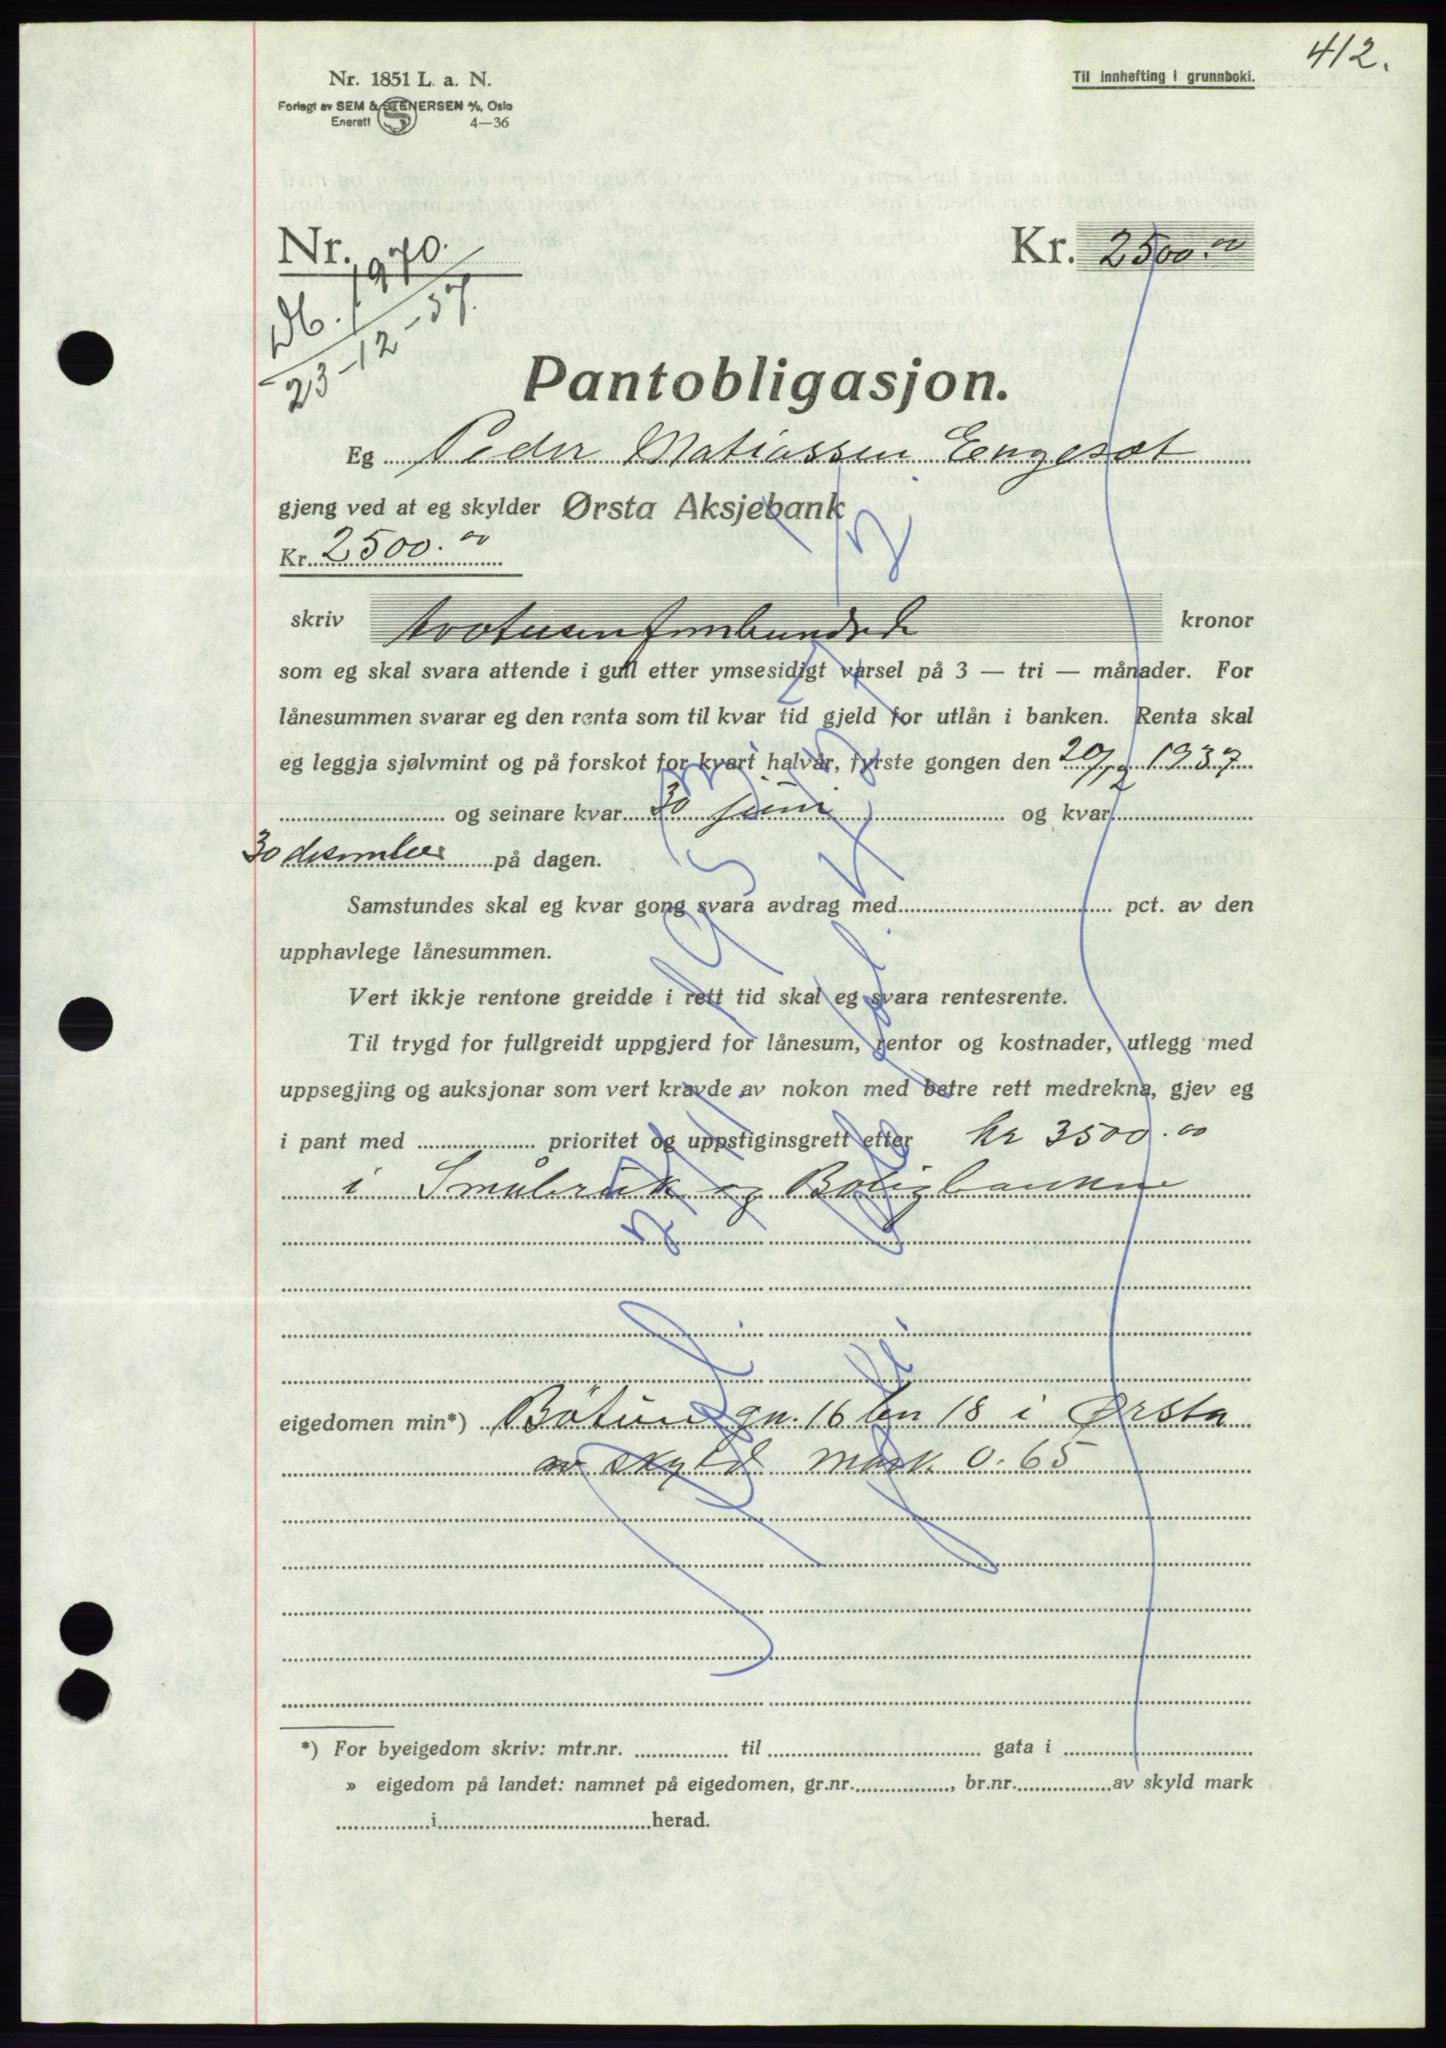 412.
Nr. 1851 L. a. N.
Til innhefting i grunnboki.
Forlagt av SEM & STENERSEN A/S, Oslo
Enerett 4—36
Nr. Kr. 2500.00
Db. 1970.
23-12-37.
Pantobligasjon.
Eg Peder Matiassen Engeset
gjeng ved at eg skylder Ørsta Aksjebank
Kr. 2500.00
skriv totusenfemhundrede kronor
som eg skal svara attende i gull etter ymsesidigt varsel på 3 — tri — månader. For
lånesummen svarar eg den renta som til kvar tid gjeld for utlån i banken. Renta skal
eg leggja sjølvmint og på forskot for kvart halvår, fyrste gongen den 20/12 1937
og seinare kvar 30 juni og kvar
30 desember på dagen.
Samstundes skal eg kvar gong svara avdrag med pct. av den
upphavlege lånesummen.
Vert ikkje rentone greidde i rett tid skal eg svara rentesrente.
Til trygd for fullgreidt uppgjerd for lånesum, rentor og kostnader, utlegg med
uppsegjing og auksjonar som vert kravde av nokon med betre rett medrekna, gjev eg
i pant med prioritet og uppstiginsgrett etter kr 3500.00
i Småbruk og Boligbanken
eigedomen min*) Bötun gn. 16 bn 18 i Ørsta
av skyld mark 0.65
*) For byeigedom skriv: mtr.nr. til gata i
» eigedom på landet: namnet på eigedomen, gr.nr. , br.nr. av skyld mark
i herad.